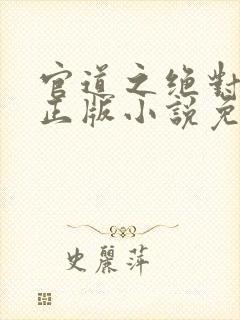 官道之絕對
正版小說免
史麗萍